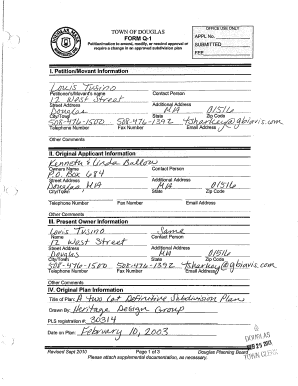 TOWN OF DOUGLAS
FORM Q-1
Petition/motion to amend, modify, or rescind approval or
require a change in an approved subdivision plan
OFFICE USE ONLY
APPL No.
SUBMITTED
FEE
I. Petition/Movant Information
Louis Tusino
Petitioner/Movant's name Contact Person
12 West Street
Street Address Additional Address
Douglas MA 01516
City/Town State Zip Code
508-476-1500 508-476-1392 tsharkey@gblaris.com
Telephone Number Fax Number Email Address
Other Comments
II. Original Applicant Information
Kenneth & Linda Ballow
Owners Name Contact Person
P.O. Box 684
Street Address Additional Address
Douglas, MA MA 01516
City/Town State Zip Code
Telephone Number Fax Number Email Address
Other Comments
III. Present Owner Information
Louis Tusino Same
Name Contact Person
12 West Street
Street Address Additional Address
Douglas MA 01516
City/Town State Zip Code
508-476-1500 508-476-1392 tsharkey@gblaris.com
Telephone Number Fax Number Email Address
Other Comments
IV. Original Plan Information
Title of Plan: A two Lot Definitive Subdivision Plan
Drawn By: Heritage Design Group
PLS registration #: 30314
Date on Plan: February 10, 2003
DOUGLAS
TOWN CLERK
Revised Sept 2010 Page 1 of 3 Douglas Planning Board
Please attach supplemental documentation, as necessary.